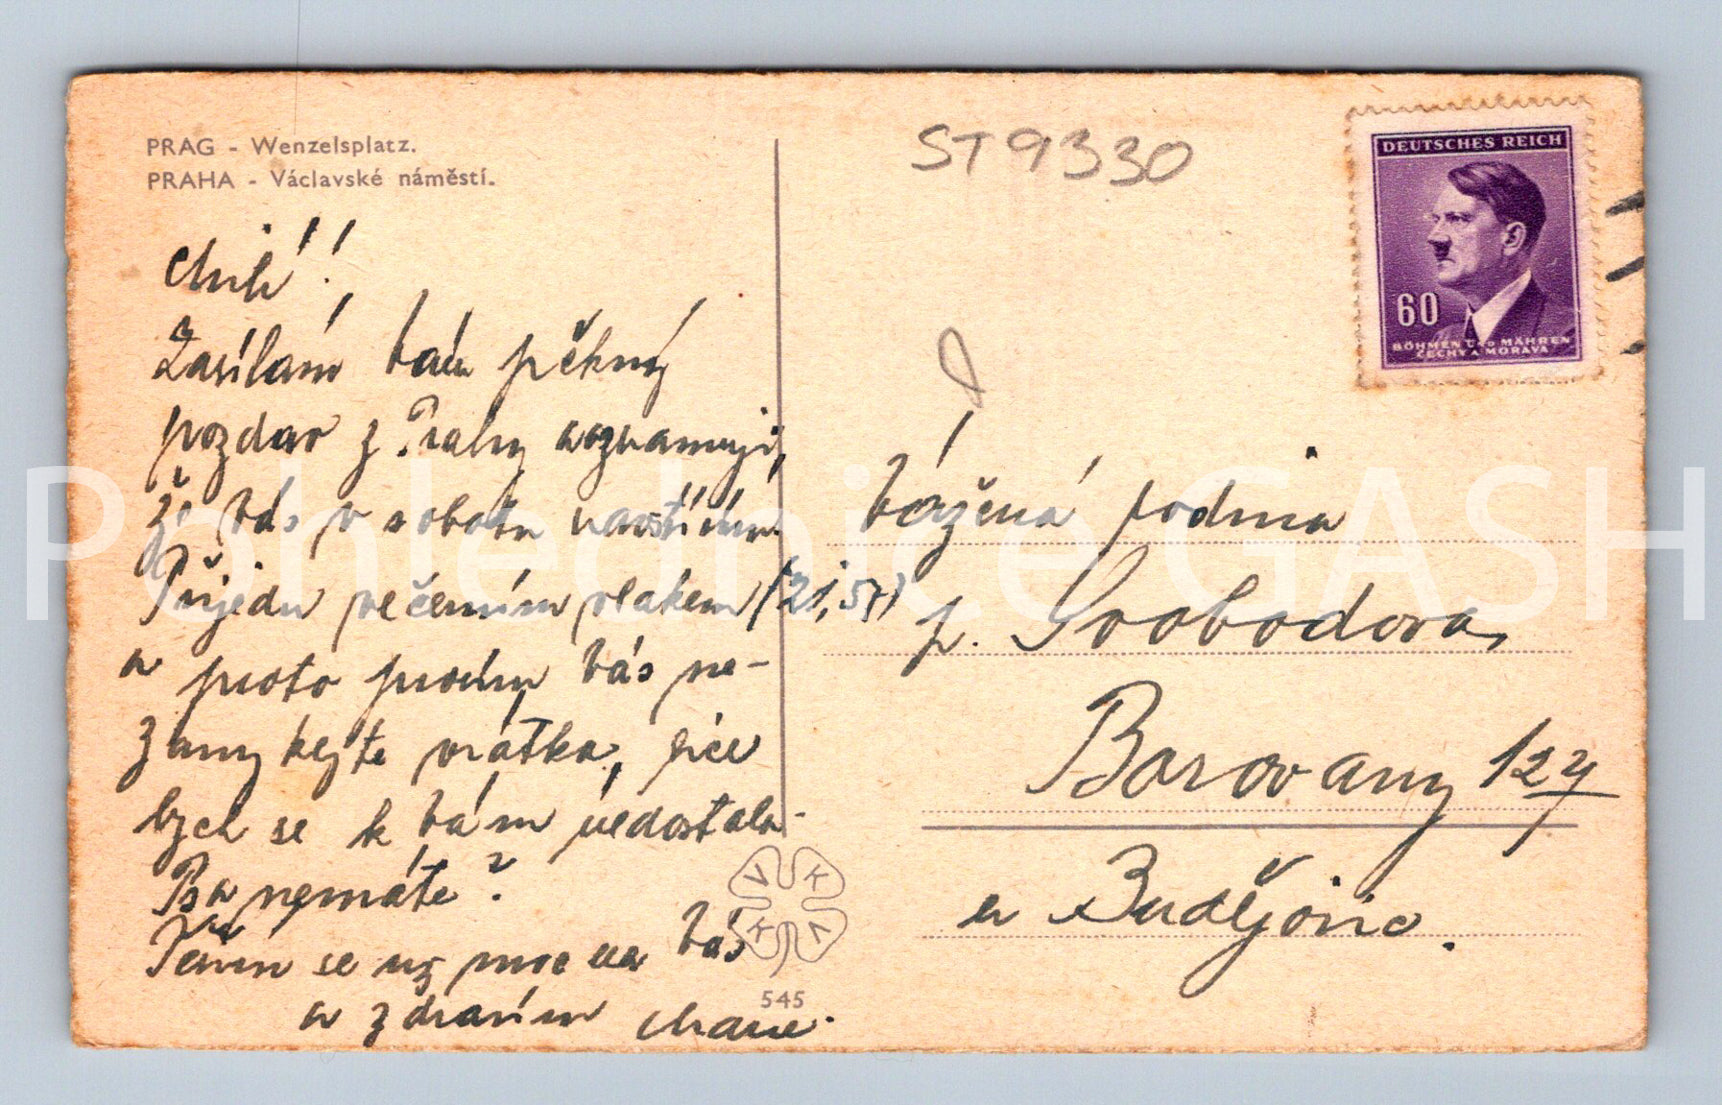 PRAG - Wenzelsplatz.
PRAHA - Václavské náměstí.
ST9330
DEUTSCHES REICH
60
BÖHMEN UND MÄHREN
ČECHY A MORAVA
Milí!
Zasílám Vám pěkný
pozdrav z Prahy a oznamuji,
že Vás v sobotu navštívím.
Přijedu večerním vlakem (21,57)
a proto prosím Vás ne-
zamykejte vrátka, sice
bych se k Vám nedostala.
Psa nemáte?
Těším se už moc na Vás
a zdravím Marie.
Vážená rodina
p. Svobodova,
Borovany 127
u Budějovic.
VKVK
545
Pohlednice GASH